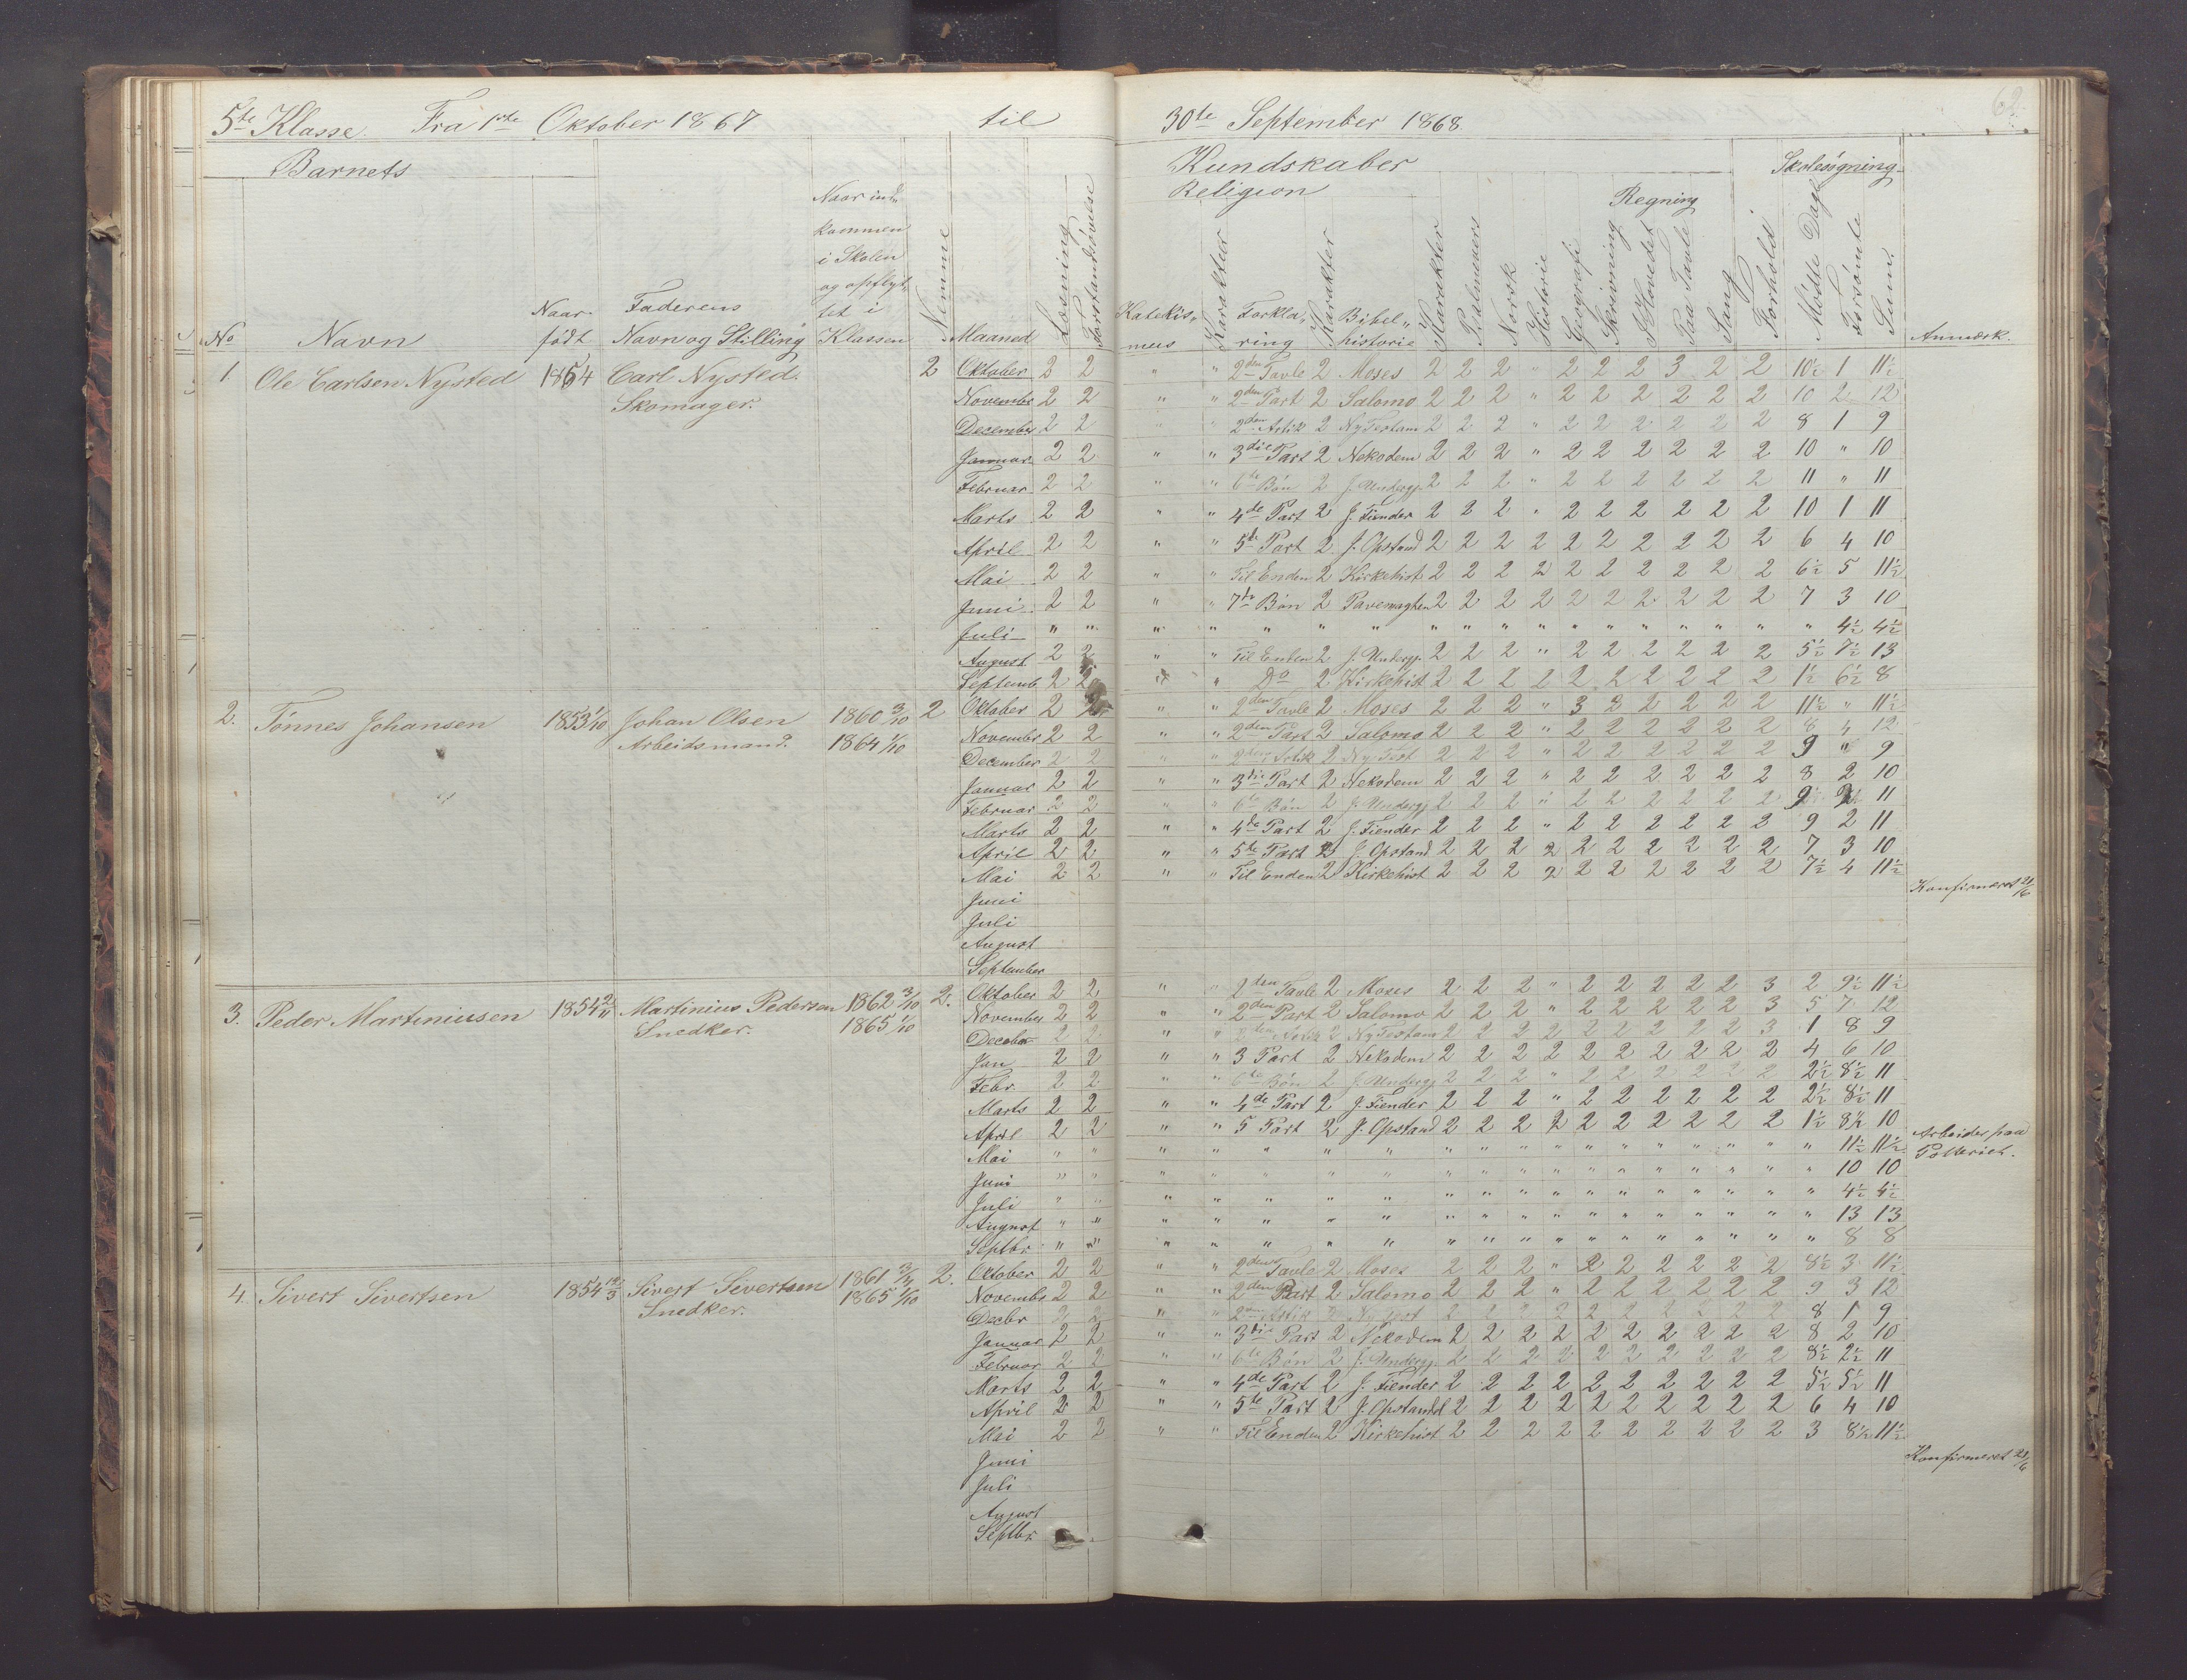 5te Klasse. Fra 1ste Oktober 1867 til 30te September 1868
62
Barnets
Kundskaber
Skolesøgning
Religion
Regning
No
Navn
Naar født
Faderens Navn og Stilling
Naar indkommen i Skolen og opflyttet i Klassen
Nemme
Maaned
Læsning
Forstandsøvelse
Katekismus
Karakter
Forklaring
Karakter
Bibelhistorie
Karakter
Psalmevers
Norsk
Historie
Geografi
Skrivning
I Hovedet
Paa Tavle
Sang
Forhold
Mødte Dage
Forsømte
Sum.
Anmærk.
1. Ole Carlsen Nysted 1854 Carl Nysted. Skomager. 2
Oktober 2 2 " " 2den Tavle 2 Moses 2 2 2 " 2 2 2 3 2 2 10½ 1 11½
November 2 2 " " 2den Part 2 Salomo 2 2 2 " 2 2 2 2 2 2 10 2 12
December 2 2 " " 2den Artik 2 Ny Testam 2 2 2 " 2 2 2 2 2 2 8 1 9
Januar 2 2 " " 3die Part 2 Nekodem 2 2 2 " 2 2 2 2 2 2 10 " 10
Februar 2 2 " " 6te Bøn 2 J. Undergj. 2 2 2 " 2 2 2 2 2 2 11 " 11
Marts 2 2 " " 4de Part 2 J. Fiender 2 2 2 " 2 2 2 2 2 2 10 1 11
April 2 2 " " 5te Part 2 J. Opstand 2 2 2 2 2 2 2 2 2 2 6 4 10
Mai 2 2 " " Til Enden 2 Kirkehist 2 2 2 2 2 2 2 2 2 2 6½ 5 11½
Juni 2 2 " " 7de Bøn 2 Pavemagten 2 2 2 2 2 2 2 2 2 2 7 3 10
Juli " " " " " " " " " " " " " " " " " " " 4½ 4½
August 2 2 " " Til Enden 2 J. Undergj. 2 2 2 " 2 2 2 2 2 2 5½ 7½ 13
Septemb. 2 2 " " Do 2 Kirkehist 2 2 2 2 2 2 2 2 2 2 1½ 6½ 8
2. Tønnes Johansen 1853 1/10 Johan Olsen Arbeidsmand. 1860 3/10 1864 1/10 2
Oktober 2 2 " " 2den Tavle 2 Moses 2 2 2 " 3 2 2 2 2 2 11½ " 11½
November 2 2 " " 2den Part 2 Salomo 2 2 2 " 2 2 2 2 2 2 8 4 12
December 2 2 " " 2den Artik 2 Ny Test 2 2 2 " 2 2 2 2 2 2 9 " 9
Januar 2 2 " " 3die Part 2 Nekodem 2 2 2 " 2 2 2 2 2 2 8 2 10
Februar 2 2 " " 6te Bøn 2 J. Undergj 2 2 2 " 2 2 2 2 2 2 9 2 11
Marts 2 2 " " 4de Part 2 J. Fiender 2 2 2 " 2 2 2 2 2 2 9 2 11
April 2 2 " " 5te Part 2 J. Opstand 2 2 2 2 2 2 2 2 2 2 7 3 10
Mai 2 2 " " Til Enden 2 Kirkehist 2 2 2 2 2 2 2 2 2 2 7½ 4 11½
Juni Konfirmeret 21/6
Juli
August
September
3. Peder Martiniusen 1854 2/11 Martinius Pedersen Snedker. 1862 3/10 1865 1/10 2.
Oktober 2 2 " " 2den Tavle 2 Moses 2 2 2 " 2 2 2 2 2 3 2 9½ 11½
November 2 2 " " 2den Part 2 Salomo 2 2 2 " 2 2 2 2 2 3 5 7 12
Decebr 2 2 " " 2den Artik 2 Ny Testam 2 2 2 2 2 2 2 2 2 3 1 8 9
Jan 2 2 " " 3 Part 2 Nekodem 2 2 2 2 2 2 2 2 2 2 4 6 10
Febr. 2 2 " " 6te Bøn 2 J. Undergj 2 2 2 " 2 2 2 2 2 2 2½ 8½ 11
Marts 2 2 " " 4de Part 2 J. Fiender 2 2 2 " 2 2 2 2 2 2 2½ 8½ 11
April 2 2 " " 5 Part 2 J. Opstand 2 2 2 2 2 2 2 2 2 2 1½ 8½ 10
Mai " " " " " " " " " " " " " " " " " " " 11½ 11½ Arbeider paa Potteriet.
Juni " " " " " " " " " " " " " " " " " " " 10 10
Juli " " " " " " " " " " " " " " " " " " " 4½ 4½
August " " " " " " " " " " " " " " " " " " " 13 13
Septbr. " " " " " " " " " " " " " " " " " " " 8 8
4. Sivert Sivertsen 1854 12/3 Sivert Sivertsen Snedker. 1861 1865 1/10 2.
Oktober 2 2 " " 2den Tavle 2 Moses 2 2 2 " 2 2 2 2 2 2 8½ 3 11½
Novembr 2 2 " " 2den Part 2 Salomo 2 2 2 " 2 2 2 2 2 2 9 3 12
Decbr 2 2 " " 2den Artik 2 Ny Test 2 2 2 2 2 2 2 2 2 2 8 1 9
Januar 2 2 " " 3die Part 2 Nekodem 2 2 2 2 2 2 2 2 2 2 8 2 10
Februar 2 2 " " 6te Bøn 2 J. Undergj. 2 2 2 2 2 2 2 2 2 2 8½ 2½ 11
Marts 2 2 " " 4de Part 2 J. Fiender 2 2 2 2 2 2 2 2 2 2 5½ 5½ 11
April 2 2 " " 5te Part 2 J. Opstand 2 2 2 2 2 2 2 2 2 2 6 4 10
Mai 2 2 " " Til Enden 2 Kirkehist 2 2 2 2 2 2 2 2 2 2 3 8½ 11½
Juni Konfirmeret 21/6
Juli
August
Septbr.